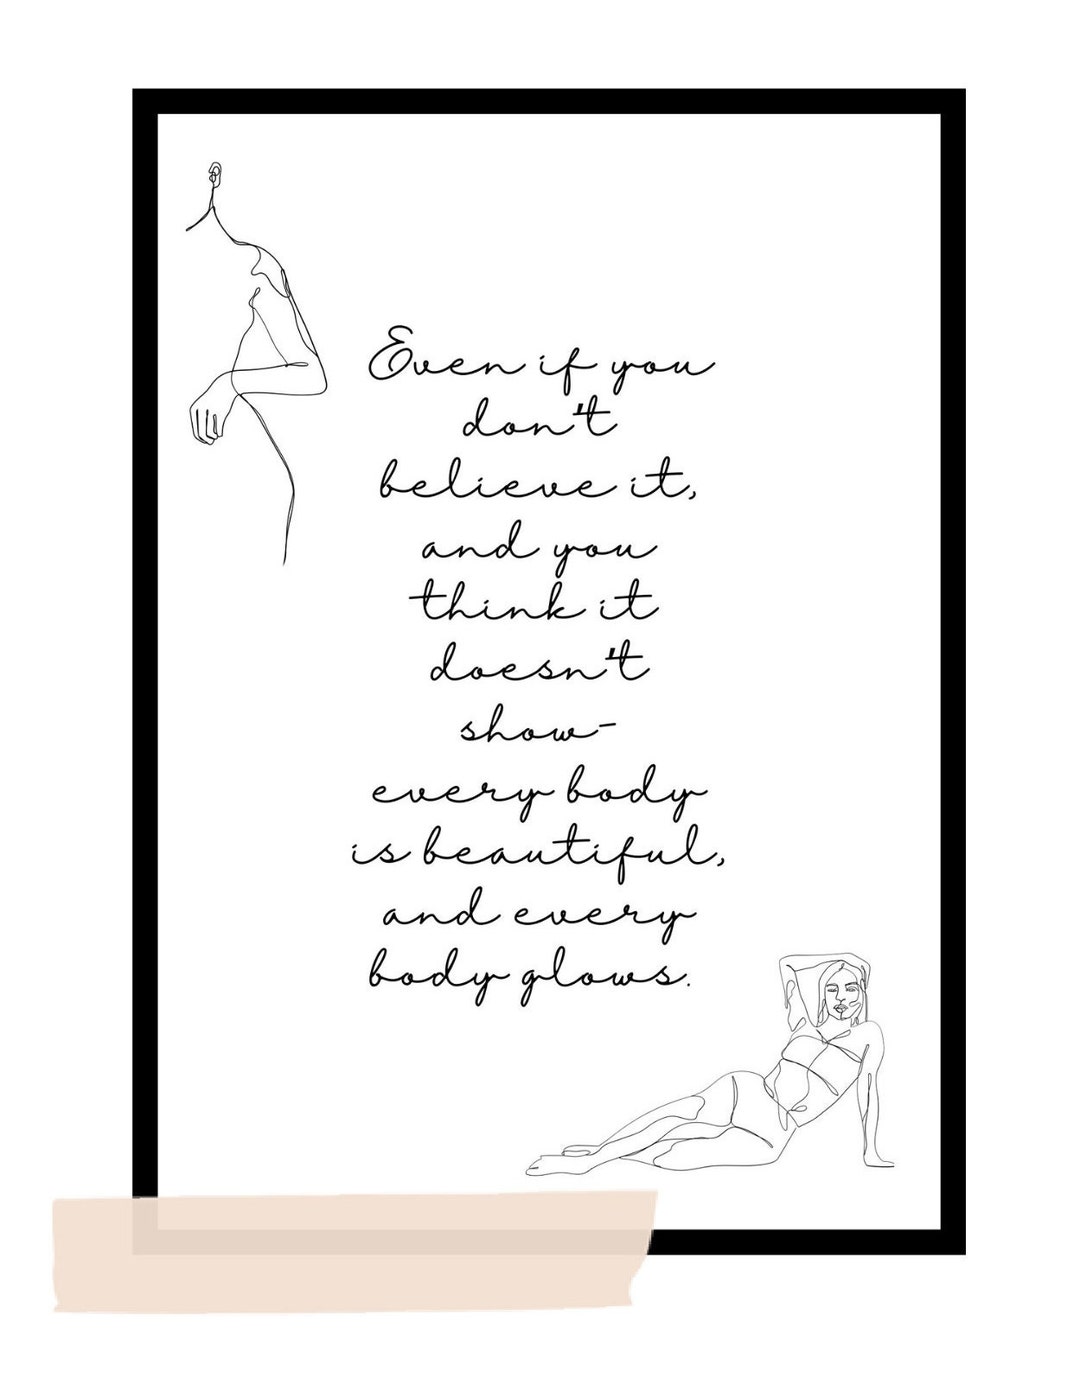 Even if you
don't
believe it,
and you
think it
doesn't
show-
every body
is beautiful,
and every
body glows.